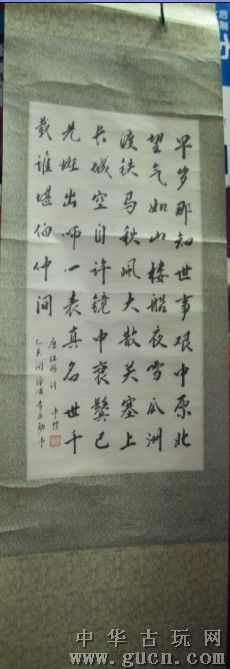 早岁那知世事艰中原北
望气如山楼船夜雪瓜洲
渡铁马秋風大散关塞上
长城空自许镜中衰鬓已
先斑出师一表真名世千
载谁堪伯仲间
诗
乙亥
中华古玩网
www.gucn.com